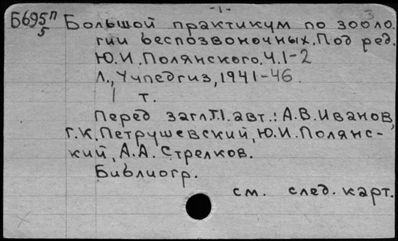 -1-
3
Б695п
5
Большой практикум по зооло
гии беспозвоночных. Под ред.
Ю.И. Полянского. Ч.1-2
Л., Учпедгиз, 1941-46.
1 т.
Перед загл. т.1. авт.: А.В. Иванов,
Г.К. Петрушевский, Ю.И. Полянс-
кий, А.А. Стрелков.
Библиогр.
см. след. карт.